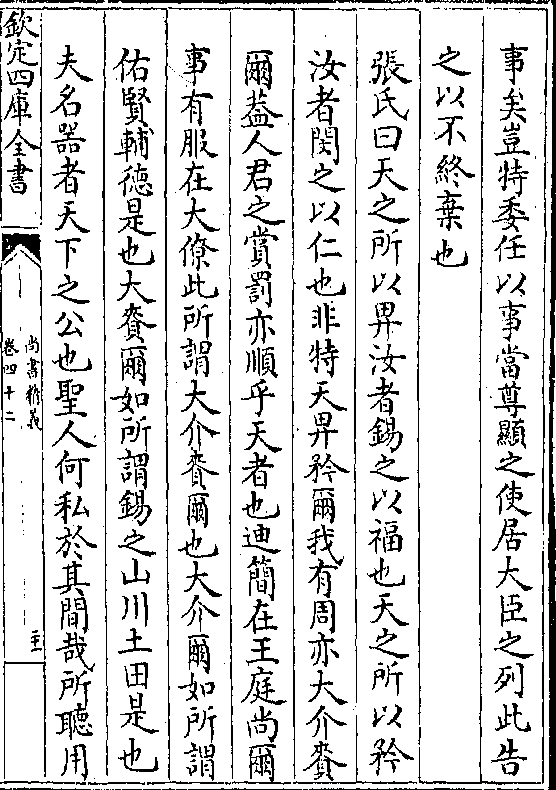 事矣豈特委任以事當尊顯之使居大臣之列此告
之以不終棄也
張氏曰天之所以畀汝者錫之以福也天之所以矜
汝者閔之以仁也非特天畀矜爾我有周亦大介賚
爾葢人君之賞罰亦順乎天者也迪簡在王庭尚爾
事有服在大僚此所謂大介賚爾也大介爾如所謂
佑賢輔德是也大賚爾如所謂錫之山川土田是也
夫名器者天下之公也聖人何私於其間哉所聽用
欽定四庫全書
尚書精義
卷四十二